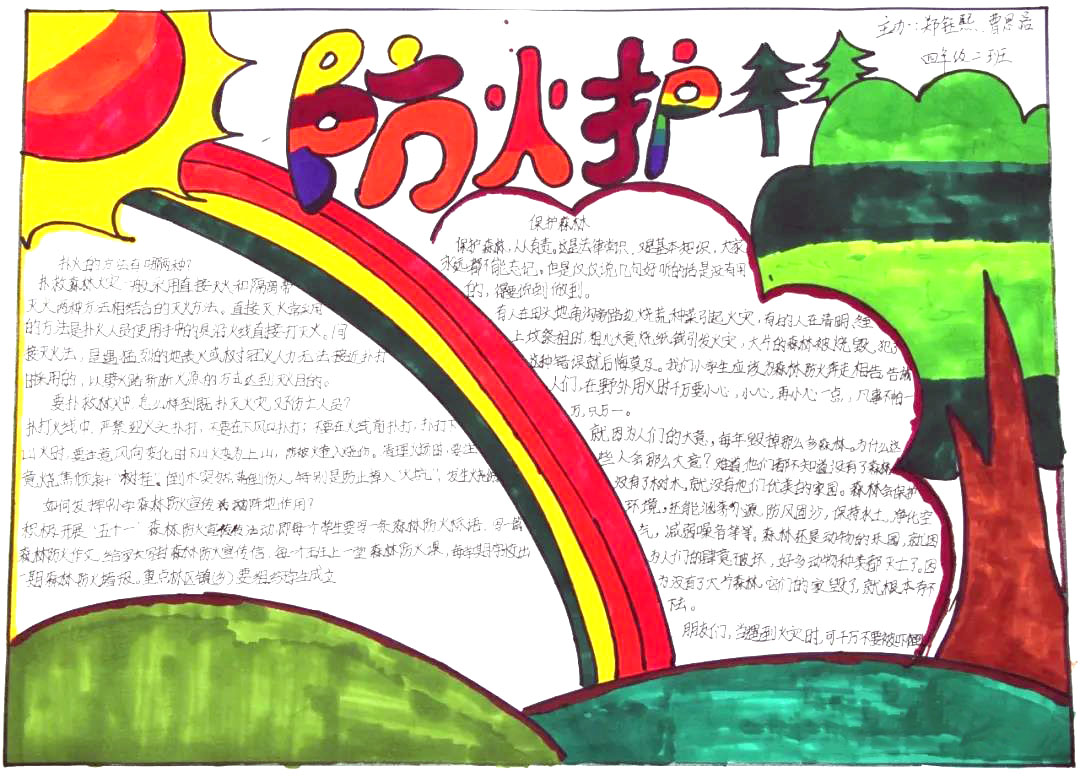 主办:郑钰熙、曹恩启
四年级二班
防火护
扑火的方法有哪两种?
扑救森林火灾一般采用直接灭火和隔离带
灭火两种方法相结合的灭火方法。直接灭火常用
的方法是扑火人员使用手中的具沿火线直接打灭火。间
接灭火法,是遇猛烈的地表火或树冠火人力无法接近扑打
时采用的,以壁火路断断火源的方式达到灭火目的。
要扑救林火中,怎么样到既扑灭火灾,又不伤亡人员?
扑打火线中,严禁迎火头扑打,不要在下风口扑打,不要在火线前扑打,扑打下
山火时,要注意风向变化时下山火变为上山,防被火卷入烧伤。清理火场时,要注
意烧焦倾斜"树挂"、倒木突然落倒伤人,特别是防止掉入"火坑",发生烧伤
如何发挥别学森林防火宣传 阵地作用?
积极开展"五十一"森林防火宣传 活动,即每个学生要写一条森林防火标语、写一篇
森林防火作文,给家长写封森林防火宣传信,每个班上一堂森林防火课,每学期学校出
一期森林防火墙报,重点林区镇(乡)要组织学生成立
保护森林
保护森林,人人有责。这是法律常识,又是基本知识,大家
永远都不能忘记。但是仅仅说几句好听的话是没有用
的,需要你到做到。
有人在田头地角沟渐路边烧荒种菜引起火灾,有的人在清明、冬至
上坟祭祖时,粗心大意烧纸钱引发火灾,大片的森林被烧毁,犯了
这种错误就后悔莫及。我们小学生应该为森林防火奔走相告,告诫
人们,在野外用火时千万要小心,小心,再小心一点,凡事不怕一
万,只万一。
就因为人们的大意,每年毁掉那么多森林。为什么这
些人会那么大意?难道他们都不知道没有了森林
没有了树木,就没有他们优美的家园。森林会保护
环境,还能涵养水源,防风固沙,保持水土,净化空
气,减弱噪音等等。森林还是动物的乐园,就因
为人们的肆意破坏,好多动物种类都灭亡了。因
为没有了大片森林,它们的家毁了,就根本存不
下去。
朋友们,当遇到火灾时,可千万不要被吓倒